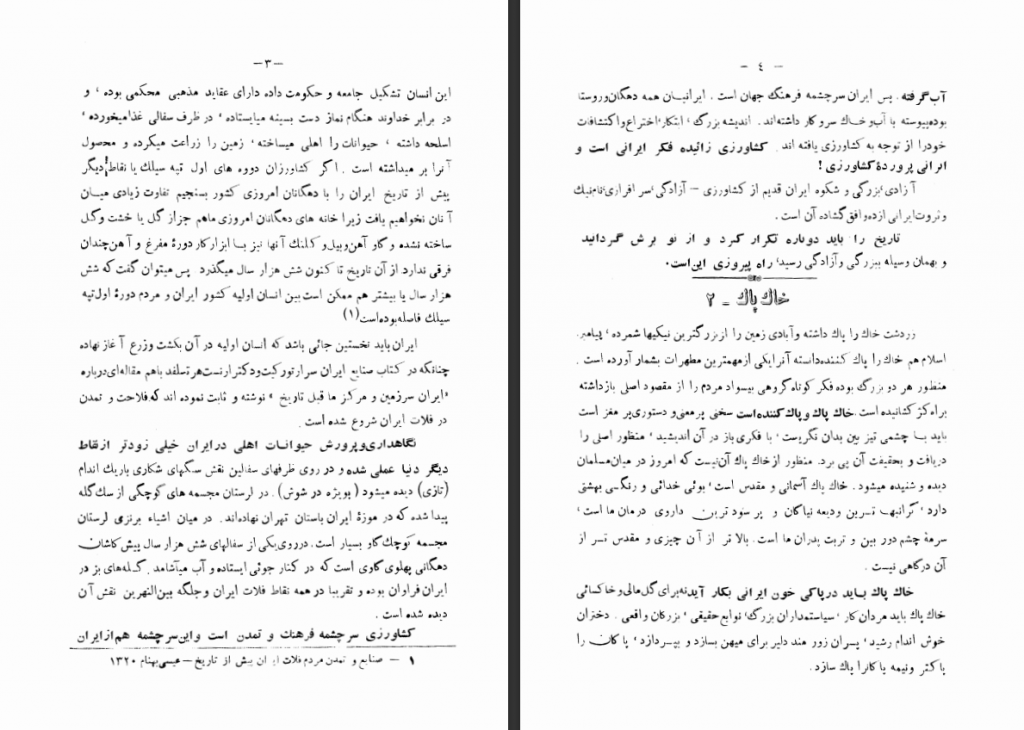 -۳-
این انسان تشکیل جامعه و حکومت داده دارای عقاید مذهبی محکمی بوده ، و
در برابر خداوند هنگام نماز دست بسینه میایستاده ، در ظرف سفالی غذا میخورده ،
اسلحه داشته ، حیوانات را اهلی میساخته ، زمین را زراعت میکرده و محصول
آنرا بر میداشته است . اگر کشاورزان دوره های اول تپه سیلك یا نقاط دیگر
پیش از تاریخ ایران را با دهگانان امروزی کشور بسنجیم تفاوت زیادی میان
آنان نخواهیم یافت زیرا خانه های دهگانان امروزی ماهم جز از گل یا خشت و گل
ساخته نشده و گاو آهن و بیل و کلنك آنها نیز با ابزار کار دورهٔ مفرغ و آهن چندان
فرقی ندارد. از آن تاریخ تا کنون شش هزار سال میگذرد پس میتوان گفت که شش
هزار سال یا بیشتر هم ممکن است بین انسان اولیه کشور ایران و مردم دورهٔ اول تپه
سیلك فاصله بوده است (۱)
ایران باید نخستین جائی باشد که انسان اولیه در آن بکشت وزرع آغاز نهاده
چنانکه در کتاب صنایع ایران سرارتور کیت و دکتر ارنست هرتسلفد باهم مقاله‌ای درباره
«ایران سرزمین و مرکز ما قبل تاریخ » نوشته و ثابت نموده اند که فلاحت و تمدن
در فلات ایران شروع شده است .
نگاهداری و پرورش حیوانات اهلی در ایران خیلی زودتر از نقاط
دیگر دنیا عملی شده و در روی ظرفهای سفالین نقش سگهای شکاری باریك اندام
(تازی) دیده میشود (بویژه در شوش) . در لرستان مجسمه های کوچکی از سك گله
پیدا شده که در موزهٔ ایران باستان تهران نهاده‌اند. در میان اشیاء برنزی لرستان
مجسمه کوچك گاو بسیار است. در روی یکی از سفالهای شش هزار سال پیش کاشان
دهگانی پهلوی گاوی است که در کنار جوئی ایستاده و آب میآشامد. گله‌های بز در
ایران فراوان بوده و تقریبا در همه نقاط فلات ایران و جلگه بین‌النهرین نقش آن
دیده شده است .
کشاورزی سرچشمه فرهنك و تمدن است و این سرچشمه هم از ایران
۱ - صنایع و تمدن مردم فلات ایران پیش از تاریخ - عیسی بهنام ۱۳۲۰
- ٤ -
آب گرفته . پس ایران سرچشمه فرهنك جهان است . ایرانیان همه دهگان و روستا
بوده پیوسته با آب و خاك سروکار داشته‌اند. اندیشه بزرك ، ابتکار ، اختراع و اکتشافات
خود را از توجه به کشاورزی یافته اند. کشاورزی زائیده فکر ایرانی است و
ایرانی پروردهٔ کشاورزی !
آزادی ، بزرگی و شکوه ایران قدیم از کشاورزی - آزادگی ، سرافرازی ، نام نیك
و ثروت ایرانی از ده و افق گشاده آن است .
تاریخ را باید دوباره تکرار کرد و از نو برش گردانید
و بهمان وسیله ببزرگی و آزادگی رسید ، راه پیروزی این است .
خاك پاك - ۲
زردشت خاك را پاك داشته و آبادی زمین را از بزرگترین نیکیها شمرده ، پیامبر
اسلام هم خاك را پاك کننده دانسته آنرا یکی از مهمترین مطهرات بشمار آورده است .
منظور هر دو بزرك بوده فکر کوتاه گروهی بیسواد مردم را از مقصود اصلی بازداشته
براه کژ کشانیده است . خاك پاك و پاك کننده است سخنی پرمعنی و دستوری پر مغز است
باید با چشمی تیز بین بدان نگریست ، با فکری باز در آن اندیشید ، منظور اصلی را
دریافت و بحقیقت آن پی برد. منظور از خاك پاك آن نیست که امروز در میان مسلمانان
دیده و شنیده میشود. خاك پاك آسمانی و مقدس است ، بوئی خدائی و رنگی بهشتی
دارد ، گرانبهاترین ودیعه نیاکان و پر سودترین داروی درمان ما است ،
سرمهٔ چشم دور بین و تربت پدران ما است. بالاتر از آن چیزی و مقدس تر از
آن درگاهی نیست .
خاك پاك باید در پاکی خون ایرانی بکار آید نه برای گل مالی و خاکسائی
خاك پاك باید مردان کار ، سیاستمداران بزرك ، نوابغ حقیقی ، بزرگان واقعی ، دختران
خوش اندام رشید ، پسران زورمند دلیر برای میهن بسازد و بپردازد ، پاکان را
پاکتر و نیمه پاکانرا پاك سازد .